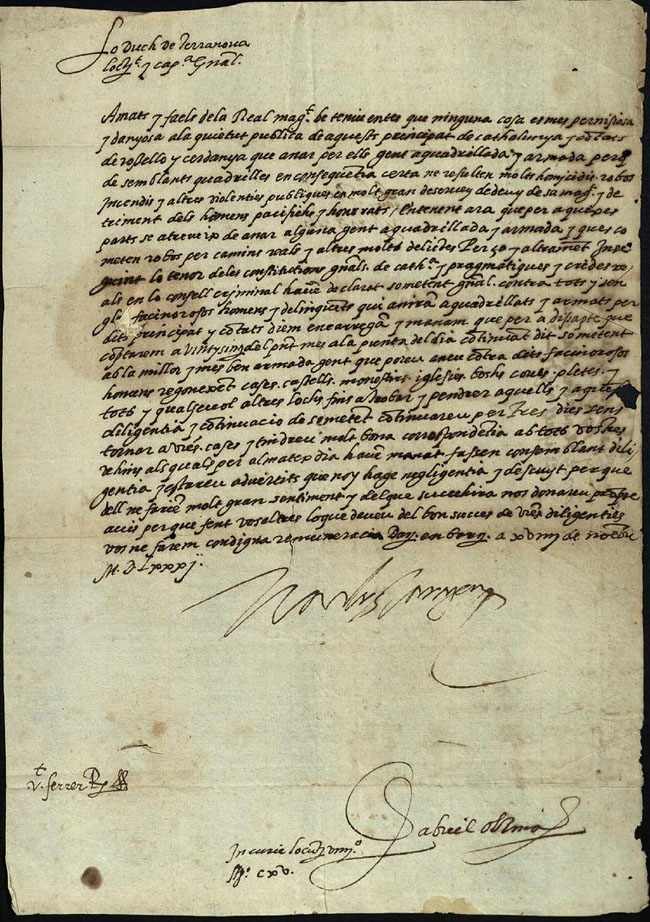 Lo duch de Terranova
loctt. y capª. Gñal.
Amats y faels dela Real magt. be teniu entes que ninguna cosa es mes pernisiosa
y danyosa ala quietut publica de aquests principat de cathalunya y cotats
de rosello y cerdanya que anar per ells gens aquadrillada y armada perq
de semblants quadrilles en consequetia certa ne resulten molts homicidis robos
Incendis y altres violenties publiques en molt gran deservey de deu y de sa magt. y de
triment dels homens pacifichs y honrrats / Entenent ara que per aquexes
parts se atreveix de anar alguna gent aquadrillada y armada y ques co
meten robos per camins reals y altres molts delictes Perço y altrament Inse
guint lo tenor deles constitutions gñals. de cathª. y pragmatiques y crides re
als en lo consell criminal havem declarat sometent gñal. contra tots y sen
gles facinorosos homens y delinquets qui aniran aquadrillats y armats per
dits principat y cotats diem encarregam y manam que per a disapte que
coptarem a vintysinch del pnt mes ala punta del dia continuant dit sometent
ab la millor y mes ben armada gent que poreu aneu cotra dits facinorosos
homens regonexent cases. castells. monestirs iglesies boschs coves. pletes. y
tots y qualsevol altres lochs fins a trobar y pendrer aquells y aqueixa
diligentia y cotinuacio de sometet cotinuareu per tres dies sens
tornar a vres. cases y tindreu molt bona correspondetia ab tots vos hes
vehins als quals per al matex dia havem manat fassen consemblant dili
gentia y estareu advertits que noy hage negligentia y descuyt per que
dell ne fariem molt gran sentiment y del que succehira nos donareu
avis perque fent vosaltres lo que deveu del bon succes de vres diligenties
vos ne farem condigna remuneracio Dat. en barª. a xviiij de noebre
M. D. Lxxxj.
v. ferrer R.
Gabriel olzina
In curie locumtm.
cxv.